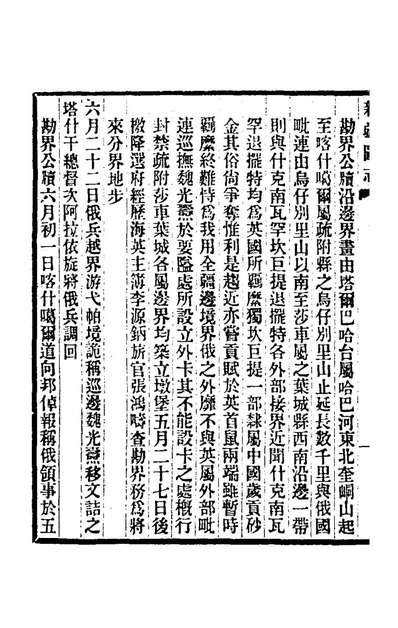 新疆圖志
勘界公牘沿邊界畫由塔爾巴哈台屬哈巴河東北奎峒山起
至喀什噶爾屬疏附縣之烏仔別里山止延長數千里與俄國
毗連由烏仔別里山以南至莎車屬之葉城縣西南沿邊一帶
則與什克南瓦罕坎巨提退擺特各外部接界近聞什克南瓦
罕退擺特均爲英國所羈縻獨坎巨提一部隸屬中國歲貢砂
金其俗尙爭奪惟利是趨近亦嘗貢賦於英首鼠兩端雖暫時
羈縻終難恃爲我用全疆邊境界俄之外靡不與英屬外部毗
連巡撫魏光燾於要隘處所設立外卡其不能設卡之處槪行
封禁疏附莎車葉城各屬邊界均築立墩堡五月二十七日後
檄降選府經歷海英主簿李源鈵旅官張鴻疇查勘界務爲將
來分界地步
六月二十二日俄兵越界游弋帕境詭稱巡邊魏光燾移文詰之
塔什干總督次阿拉依旋將俄兵調回
勘界公牘六月初一日喀什噶爾道向邦倬報稱俄領事於五